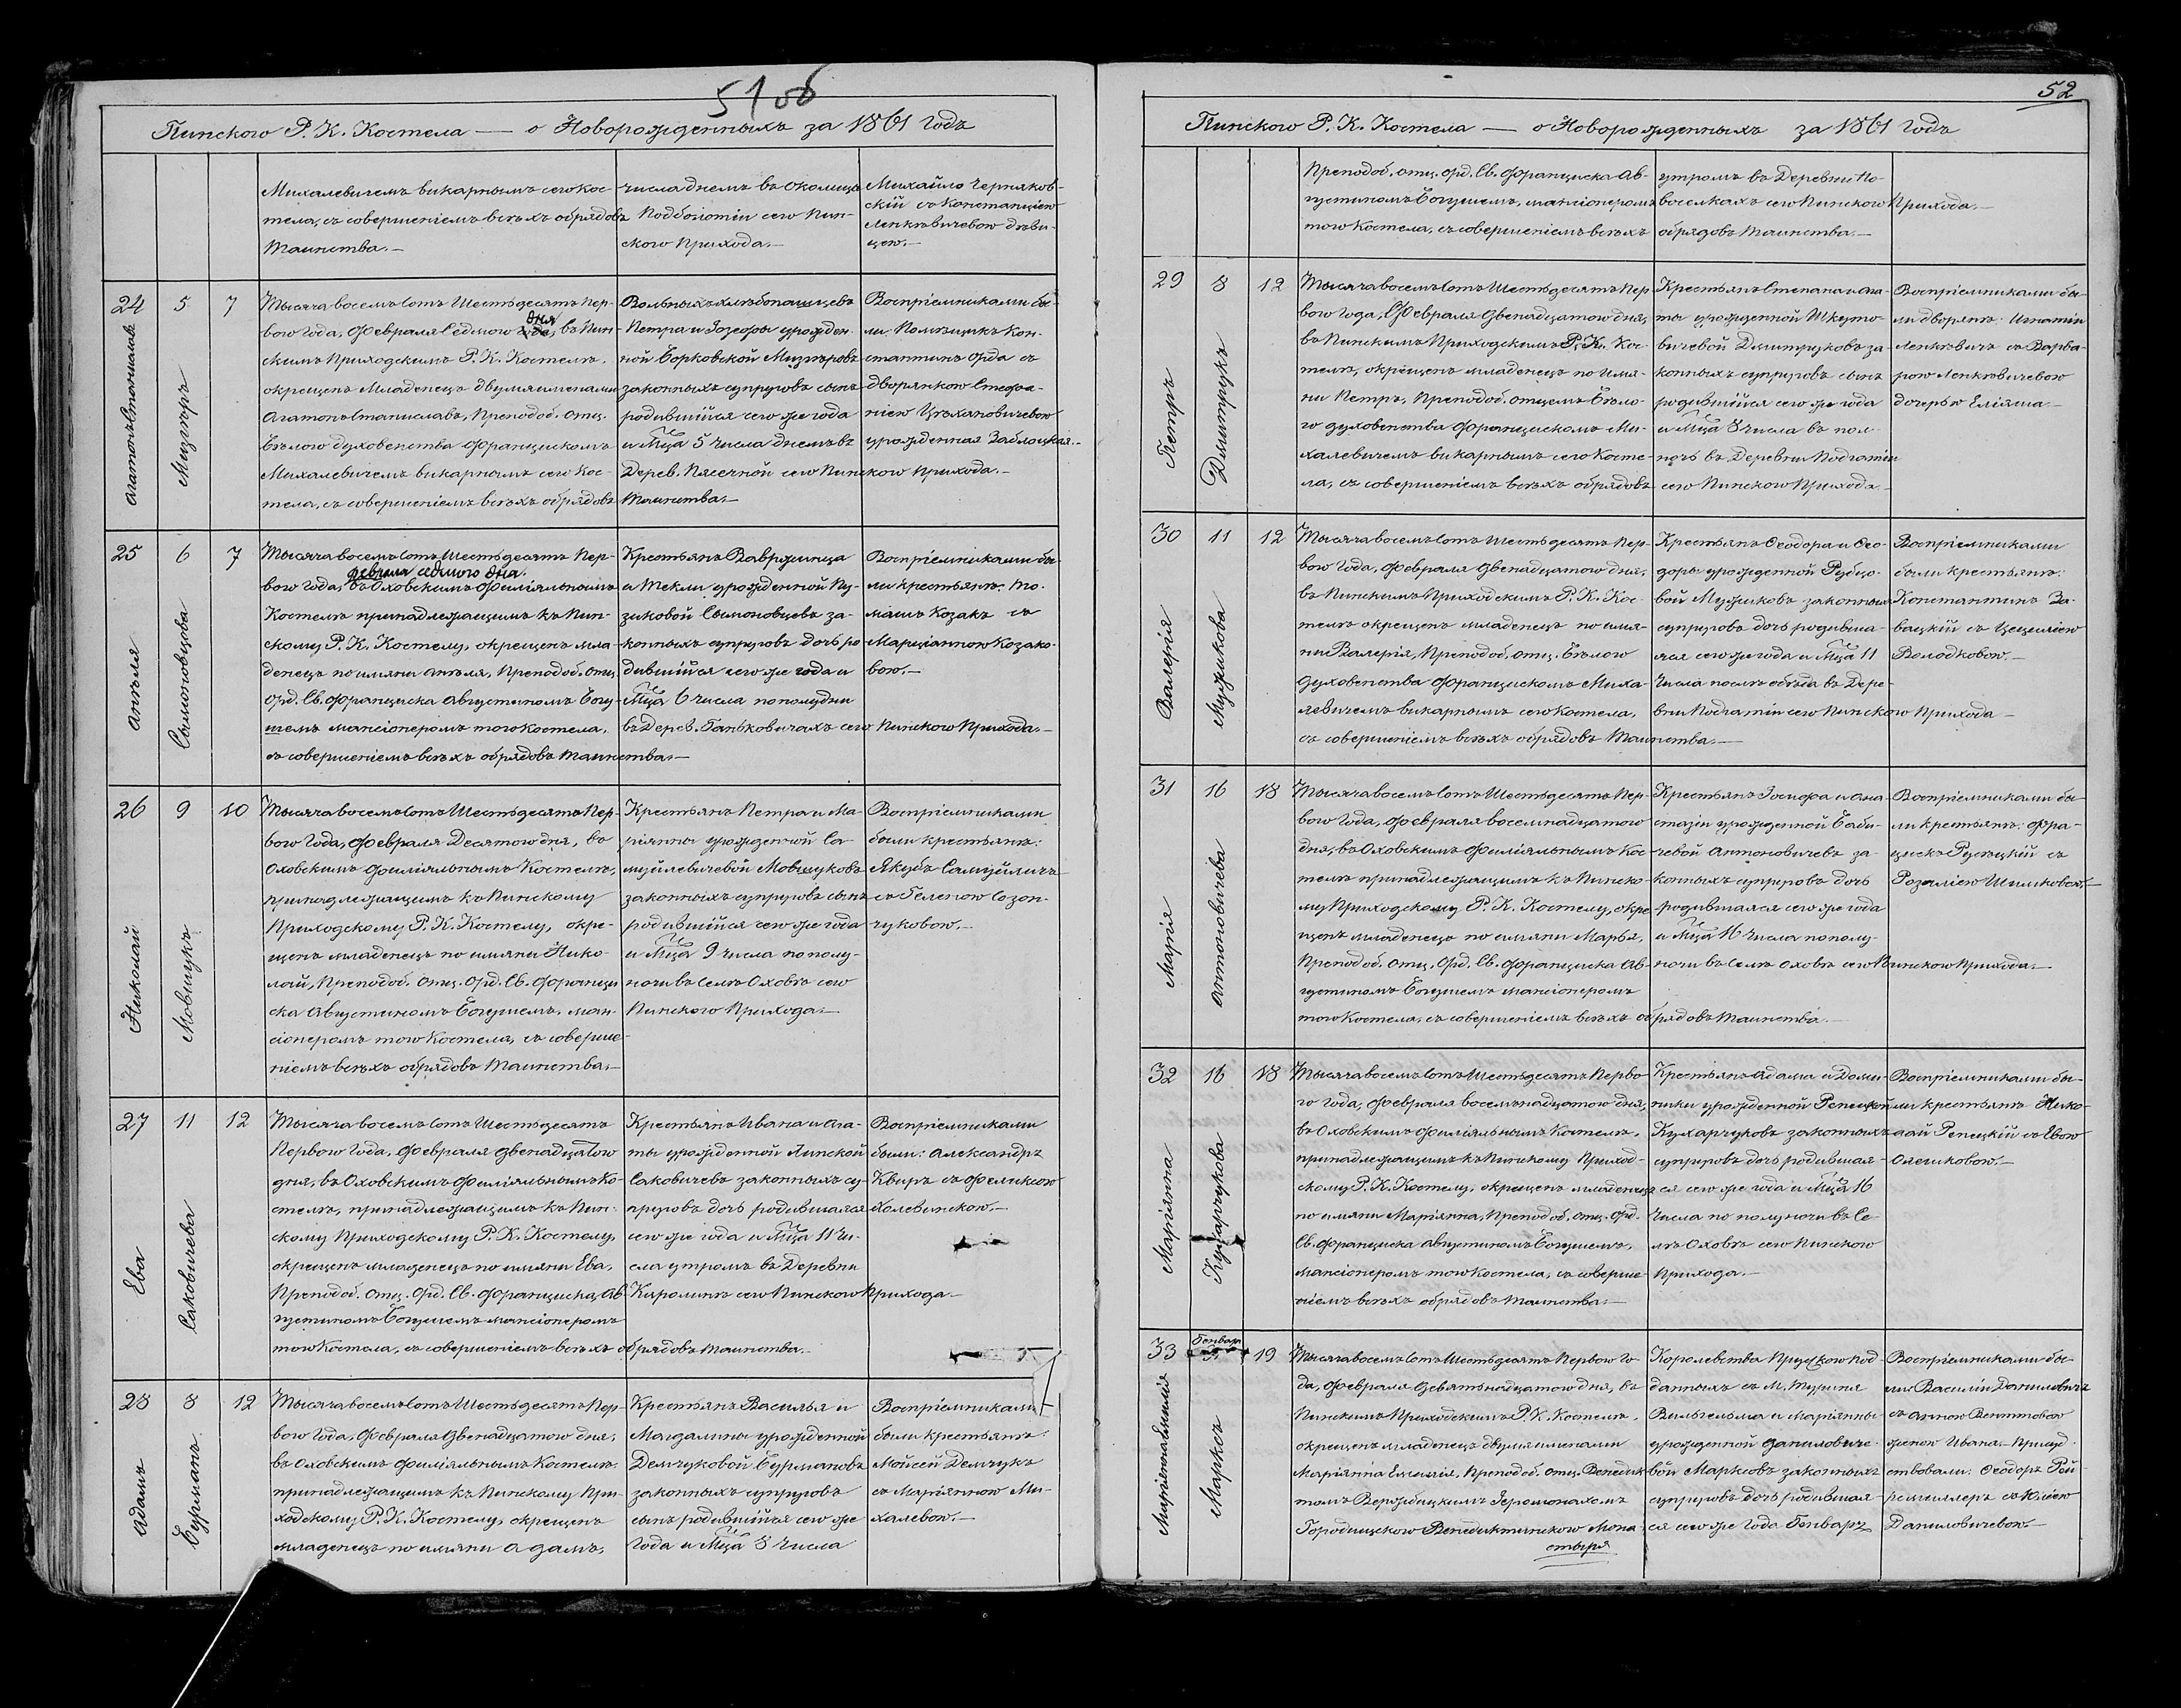 51 об
Пинского Р. К. Костела — о Новорожденныхъ за 1861 годъ
Михалевичемъ викарнымъ сего Кос-
тела, съ совершеніемъ всѣхъ обрядовъ
Таинства.—
числа днемъ въ Околицѣ
Подболотіи сего Пин-
скаго Прихода.—
Михайло Черняков-
скій съ Констанціею
Ленкевичевою дѣви-
цею.—
24
Агатонъ Станиславъ
5
Мизгеръ
7
Тысяча восемь сотъ шестьдесятъ пер-
ваго Года, Февраля Седмого дня, въ Пин-
скимъ Приходскимъ Р. К. Костелѣ,
окрещенъ Младенецъ двумя именами
Агатонъ Станиславъ, Преподоб. Отц.
Бѣлого духовенства Францишкомъ
Михалевичемъ викарнымъ сего Кос-
тела, съ совершеніемъ всѣхъ обрядовъ Таинства.—
Вольныхъ хлѣбопашцевъ
Петра и Іозефы урожден-
ной Борковской Мизгеровъ
законныхъ супруговъ сынъ
родившійся сего же года
и Мца 5 числа днемъ въ
Дерев. Пясечной сего Пинского Прихода.—
Воспріемниками бы-
ли: Помѣщикъ Кон-
стантинъ Орда съ
дворянкою Стефа-
ніею Цѣхановичевою
урожденная Заблоцкая.—
25
Анѣля
6
Сымоновцова
7
Тысяча восемь сотъ шестьдесятъ пер-
февраля седмого дня.
вого Года, въ Оховскимъ Филіяльномъ
Костелѣ принадлежащимъ къ Пин-
скому Р. К. Костелу, окрещенъ мла-
денецъ по имяни Анѣля, Преподоб. Отц.
Орд. Св. Францишка Августиномъ Богу-
шемъ мансіонеромъ того Костела,
съ совершеніемъ всѣхъ обрядовъ Таинства.—
Крестьянъ Вавржинца
и Текли урожденной Пу-
зиковой Сымоновцевъ за-
конныхъ супруговъ дочь ро-
дившійся сего же года и
Мца 6 числа пополудни
въ Дерев. Ганьковичахъ сего Пинского Прихода.—
Воспріемниками бы-
ли крестьянѣ: То-
машъ Козакъ съ
Марціанною Козако-
вою.—
26
Николай
9
Мовшукъ
10
Тысяча восемь сотъ шестьдесятъ пер-
вого Года, Февраля Десятого дня, въ
Оховскимъ Филіяльнымъ Костелѣ,
принадлежащимъ къ Пинскому
Приходскому Р. К. Костелу, окре-
щенъ младенецъ по имяни Нико-
лай, Преподоб. Отц. Орд. Св. Францыш-
ка Августиномъ Богушемъ, ман-
сіонеромъ того Костела, съ соверше-
ніемъ всѣхъ обрядовъ Таинства.—
Крестьянъ Петра и Ма-
ріянны урожденной Са-
муйлевичевой Мовшуковъ
законныхъ супруговъ сынъ
родившійся сего же года
и Мца 9 числа по полу-
ночи въ Селѣ Оховѣ сего
Пинского Прихода.—
Воспріемниками
были крестьянѣ:
Якубъ Самуйличъ
съ Геленою Созон-
чуковою.—
27
Ева
11
Саковичева
12
Тысяча восемь сотъ шестьдесятъ
Первого Года, Февраля двенадцатого
дня, въ Оховскимъ Филіяльнымъ Ко-
стелѣ, принадлежащимъ къ Пин-
скому Приходскому Р. К. Костелу,
окрещенъ младенецъ по имяни Ева,
Преподоб. Отц. Орд. Св. Францишка, Ав-
густиномъ Богушемъ мансіонеромъ
того Костела, съ совершеніемъ всѣхъ обрядовъ Таинства.—
Крестьянъ Ивана и Ага-
ты урожденной Липской
Саковичевъ законныхъ су-
пруговъ дочь родившаяся
сего же года и Мца 11 чи-
сла утромъ въ Деревни
Каролинѣ сего Пинского Прихода.—
Воспріемниками
были: Александръ
Квиръ съ Феликсою
Холевинскою.—
28
Адамъ
8
Бурманъ
12
Тысяча восемь сотъ шестьдесятъ пер-
вого Года, Февраля двенадцатого дня,
въ Оховскимъ Филіяльнымъ Костелѣ,
принадлежащимъ къ Пинскому При-
ходскому Р. К. Костелу, окрещенъ
младенецъ по имяни Адамъ,
Крестьянъ Василья и
Магдалины урожденной
Демчуковой Бурмановъ
законныхъ супруговъ
сынъ родившійся сего же
Года и Мца 8 числа
Воспріемниками
были крестьянѣ:
Мойсей Демчукъ
съ Маріянною Ми-
халевою.—
52
Пинского Р. К. Костела — о Новорожденныхъ за 1861 Годъ
Преподоб. Отц. Орд. Св. Францишка Ав-
густиномъ Богушемъ, мансіонеромъ
того Костела, съ совершеніемъ всѣхъ обрядовъ Таинства.—
утромъ въ Деревни По-
воселкахъ сего Пинского Прихода.—
29
Петръ
8
Дмитрукъ
12
Тысяча восемь сотъ шестьдесятъ пер-
вого Года, Февраля двенадцатого дня,
въ Пинскимъ Приходскимъ Р. К. Кос-
телѣ, окрещенъ младенецъ по имя-
ни Петръ, Преподоб. Отцемъ Бѣло-
го духовенства Францишкомъ Ми-
халевичемъ викарнымъ сего Косте-
ла, съ совершеніемъ всѣхъ обрядовъ
Крестьянъ Степана и Ага-
ты урожденной Шкуто-
вичевой Дмитруковъ за-
конныхъ супруговъ сынъ
родившійся сего же года
и Мца 8 числа въ пол-
ночь въ Деревни Подгатіи
сего Пинского Прихода.—
Воспріемниками бы-
ли дворянѣ: Игнатій
Ленкевичъ съ Варва-
рою Ленкевичевою
дочерью Еліяша.—
30
Валерія
11
Мужикова
12
Тысяча восемь сотъ шестьдесятъ пер-
вого Года, Февраля двенадцатого дня,
въ Пинскимъ Приходскимъ Р. К. Кос-
телѣ окрещенъ младенецъ по имя-
ни Валерія, Преподоб. Отц. Бѣлого
духовенства Францишкомъ Миха-
левичемъ викарнымъ сего Костела,
съ совершеніемъ всѣхъ обрядовъ Таинства.—
Крестьянъ Ѳеодора и Ѳео-
доры урожденной Рубцо-
вой Мужиковъ законныхъ
супруговъ дочь родивша-
яся сего же года и Мца 11
числа послѣ обѣда въ Дере-
вни Подгатіи сего Пинского Прихода.—
Воспріемниками
были крестьянѣ:
Константинъ За-
вацкій съ Цецыліею
Володковою.—
31
Марія
16
Антоновичева
18
Тысяча восемь сотъ шестьдесятъ пер-
вого Года, Февраля восемнадцатого
дня, въ Оховскимъ Филіяльнымъ Кос-
телѣ принадлежащимъ къ Пинско-
му Приходскому Р. К. Костелу, окре-
щенъ младенецъ по имяни Марья,
Преподоб. Отц. Орд. Св. Францишка Ав-
густиномъ Богушемъ мансіонеромъ
того Костела, съ совершеніемъ всѣхъ обрядовъ Таинства.—
Крестьянъ Іосифа и Ана-
стазіи урожденной Баби-
чевой Антоновичевъ за-
конныхъ супруговъ дочь
родившаяся сего же года
и Мца 16 числа по полу-
ночи въ Селѣ Оховѣ сего Пинского Прихода.—
Воспріемниками бы-
ли крестьянѣ: Фра-
цискъ Русецкій съ
Розаліею Шишковою.—
32
Маріянна
16
Кухарчукова
18
Тысяча восемь сотъ шестьдесятъ перво-
го Года, Февраля восемьнадцатого дня,
въ Оховскимъ Филіяльнымъ Костелѣ,
принадлежащимъ къ Пинскому Приход-
скому Р. К. Костелу, окрещенъ младенецъ
по имяни Маріянна, Преподоб. Отц. Орд.
Св. Францишка Августиномъ Богушемъ,
мансіонеромъ того Костела, съ соверше-
ніемъ всѣхъ обрядовъ Таинства.—
Крестьянъ Адама и Доми-
ники урожденной Репецкой
Кухарчуковъ законныхъ
супруговъ дочь родившая-
ся сего же года и Мца 16
числа по полуночи въ Се-
лѣ Оховѣ сего Пинского
Прихода.—
Воспріемниками бы-
ли крестьянѣ Нико-
лай Репецкій съ Евою
Олешковою.—
33
Маріянна Емилія
Генваря
Марксъ
19
Тысяча восемь сотъ шестьдесятъ первого Го-
да, Февраля девятьнадцатого дня, въ
Пинскимъ Приходскимъ Р. К. Костелѣ,
окрещенъ младенецъ двумя именами
Маріянна Емилія, Преподоб. Отц. Венедик-
томъ Вержбицкимъ Іеромонахомъ
Городищского Венедиктинского Мона-
стыря
Королевства Прусскаго под-
данныхъ съ М.
Вильгельма и Маріянны
урожденной Даниловиче-
вой Марксовъ законныхъ
супруговъ дочь родившая-
ся сего же Года Генваря
Воспріемниками бы-
ли: Василій Даниловичъ
съ Анною
женою Ивана.— Присуд-
ствовали: Ѳеодоръ Рей-
съ Юліею
Даниловичевою.—